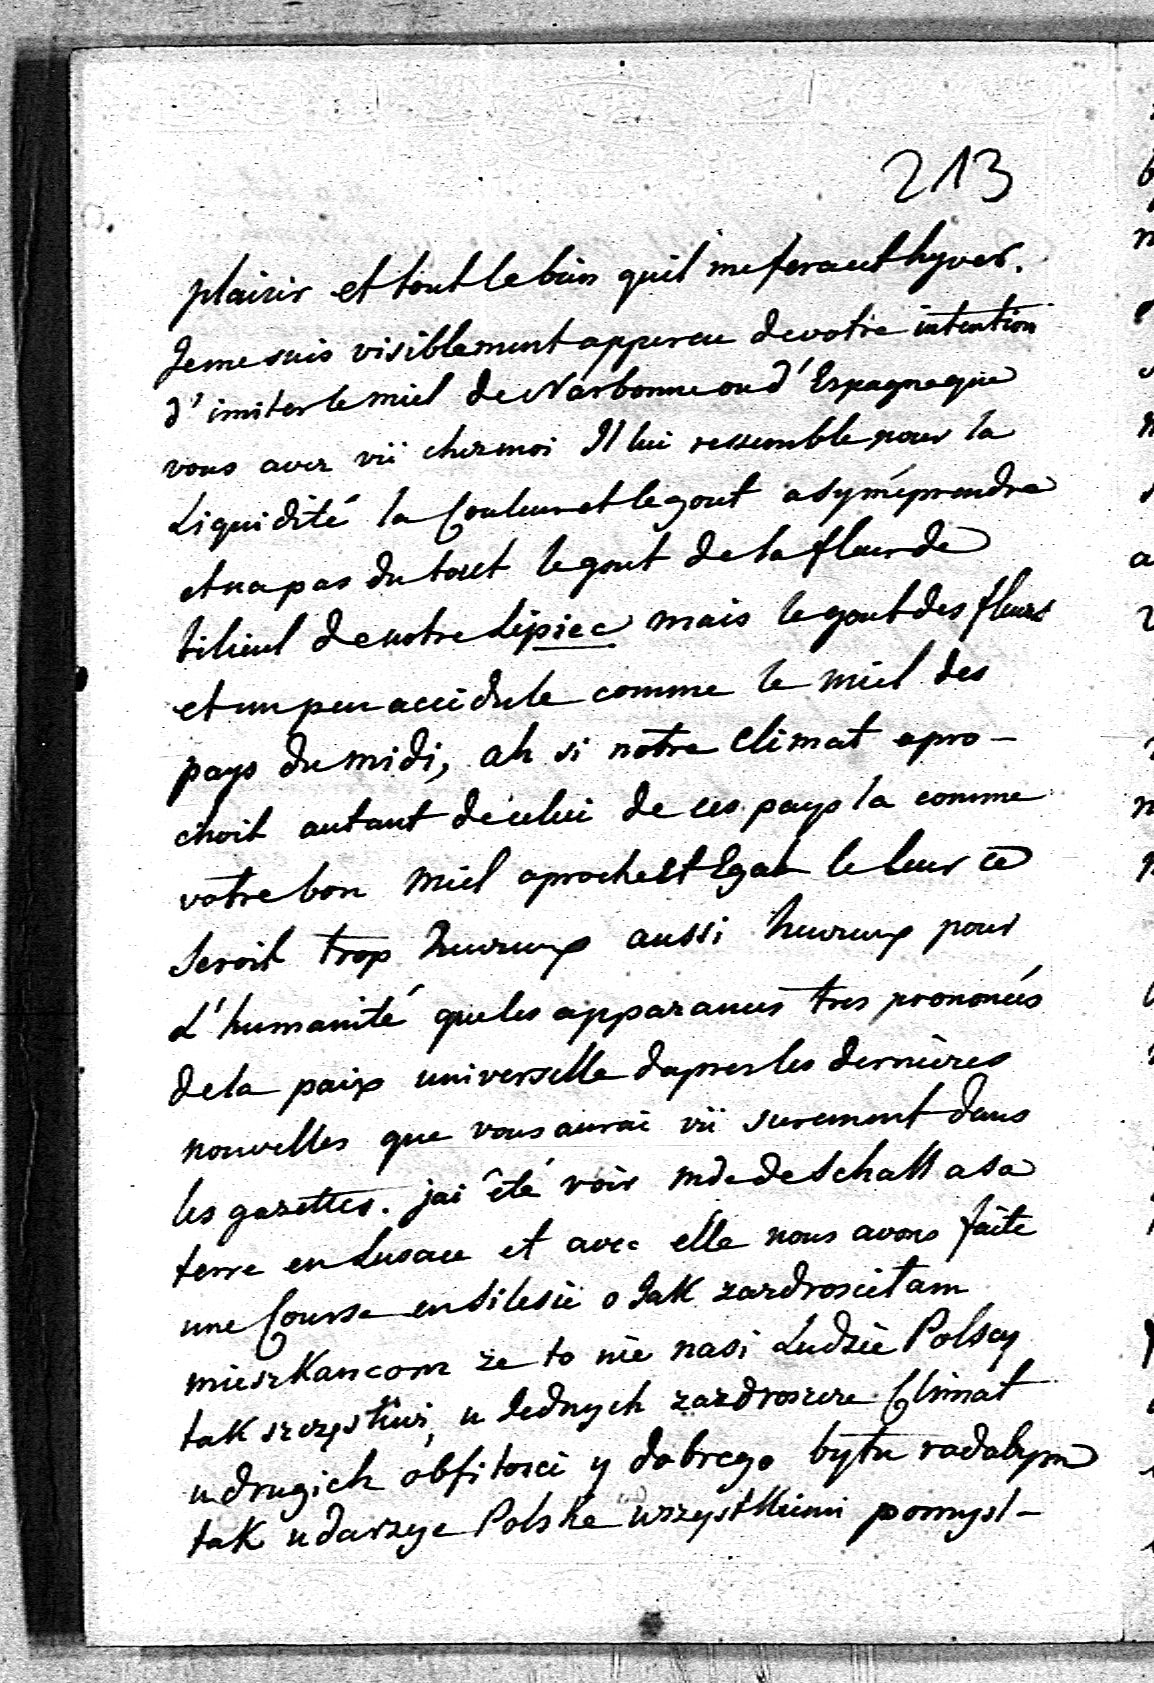 213
plaisir et tout le bien quil me fera cet hyver.
Je me suis visiblement apperçue de votre intention
d'imiter le miel de Narbonne ou d'Espagne que
vous avez vü chez moi Il lui ressemble pour la
Liquidité la Couleur et le gout a sy méprendre
et na pas du tout le gout de la fleur de
tilieul de notre Lipiec mais le gout des fleurs
et un peu accidule comme le miel des
pays du midi, ah si notre Climat apro-
choit autant de celui de ces pays la comme
votre bon Miel aproche et Egale le leur ce
seroit trop heureux aussi heureux pour
L'humanité que les apparances tres prononcés
de la paix universelle dapres les dernières
nouvelles que vous aurai vü surement dans
les gazettes. jai été voir mde de Schall a sa
terre en Lusace et avec elle nous avons faite
une Course en Silesie o Jak zazdrosciłam
mieszkancom ze to nie nasi Ludzie Polscy
tak szczęsliwi, u Jednych zazdroszcze Climat
u drugich obfitosci y dobrego bytu radabym
tak udarzyc Polske wszystkiemi pomysl-